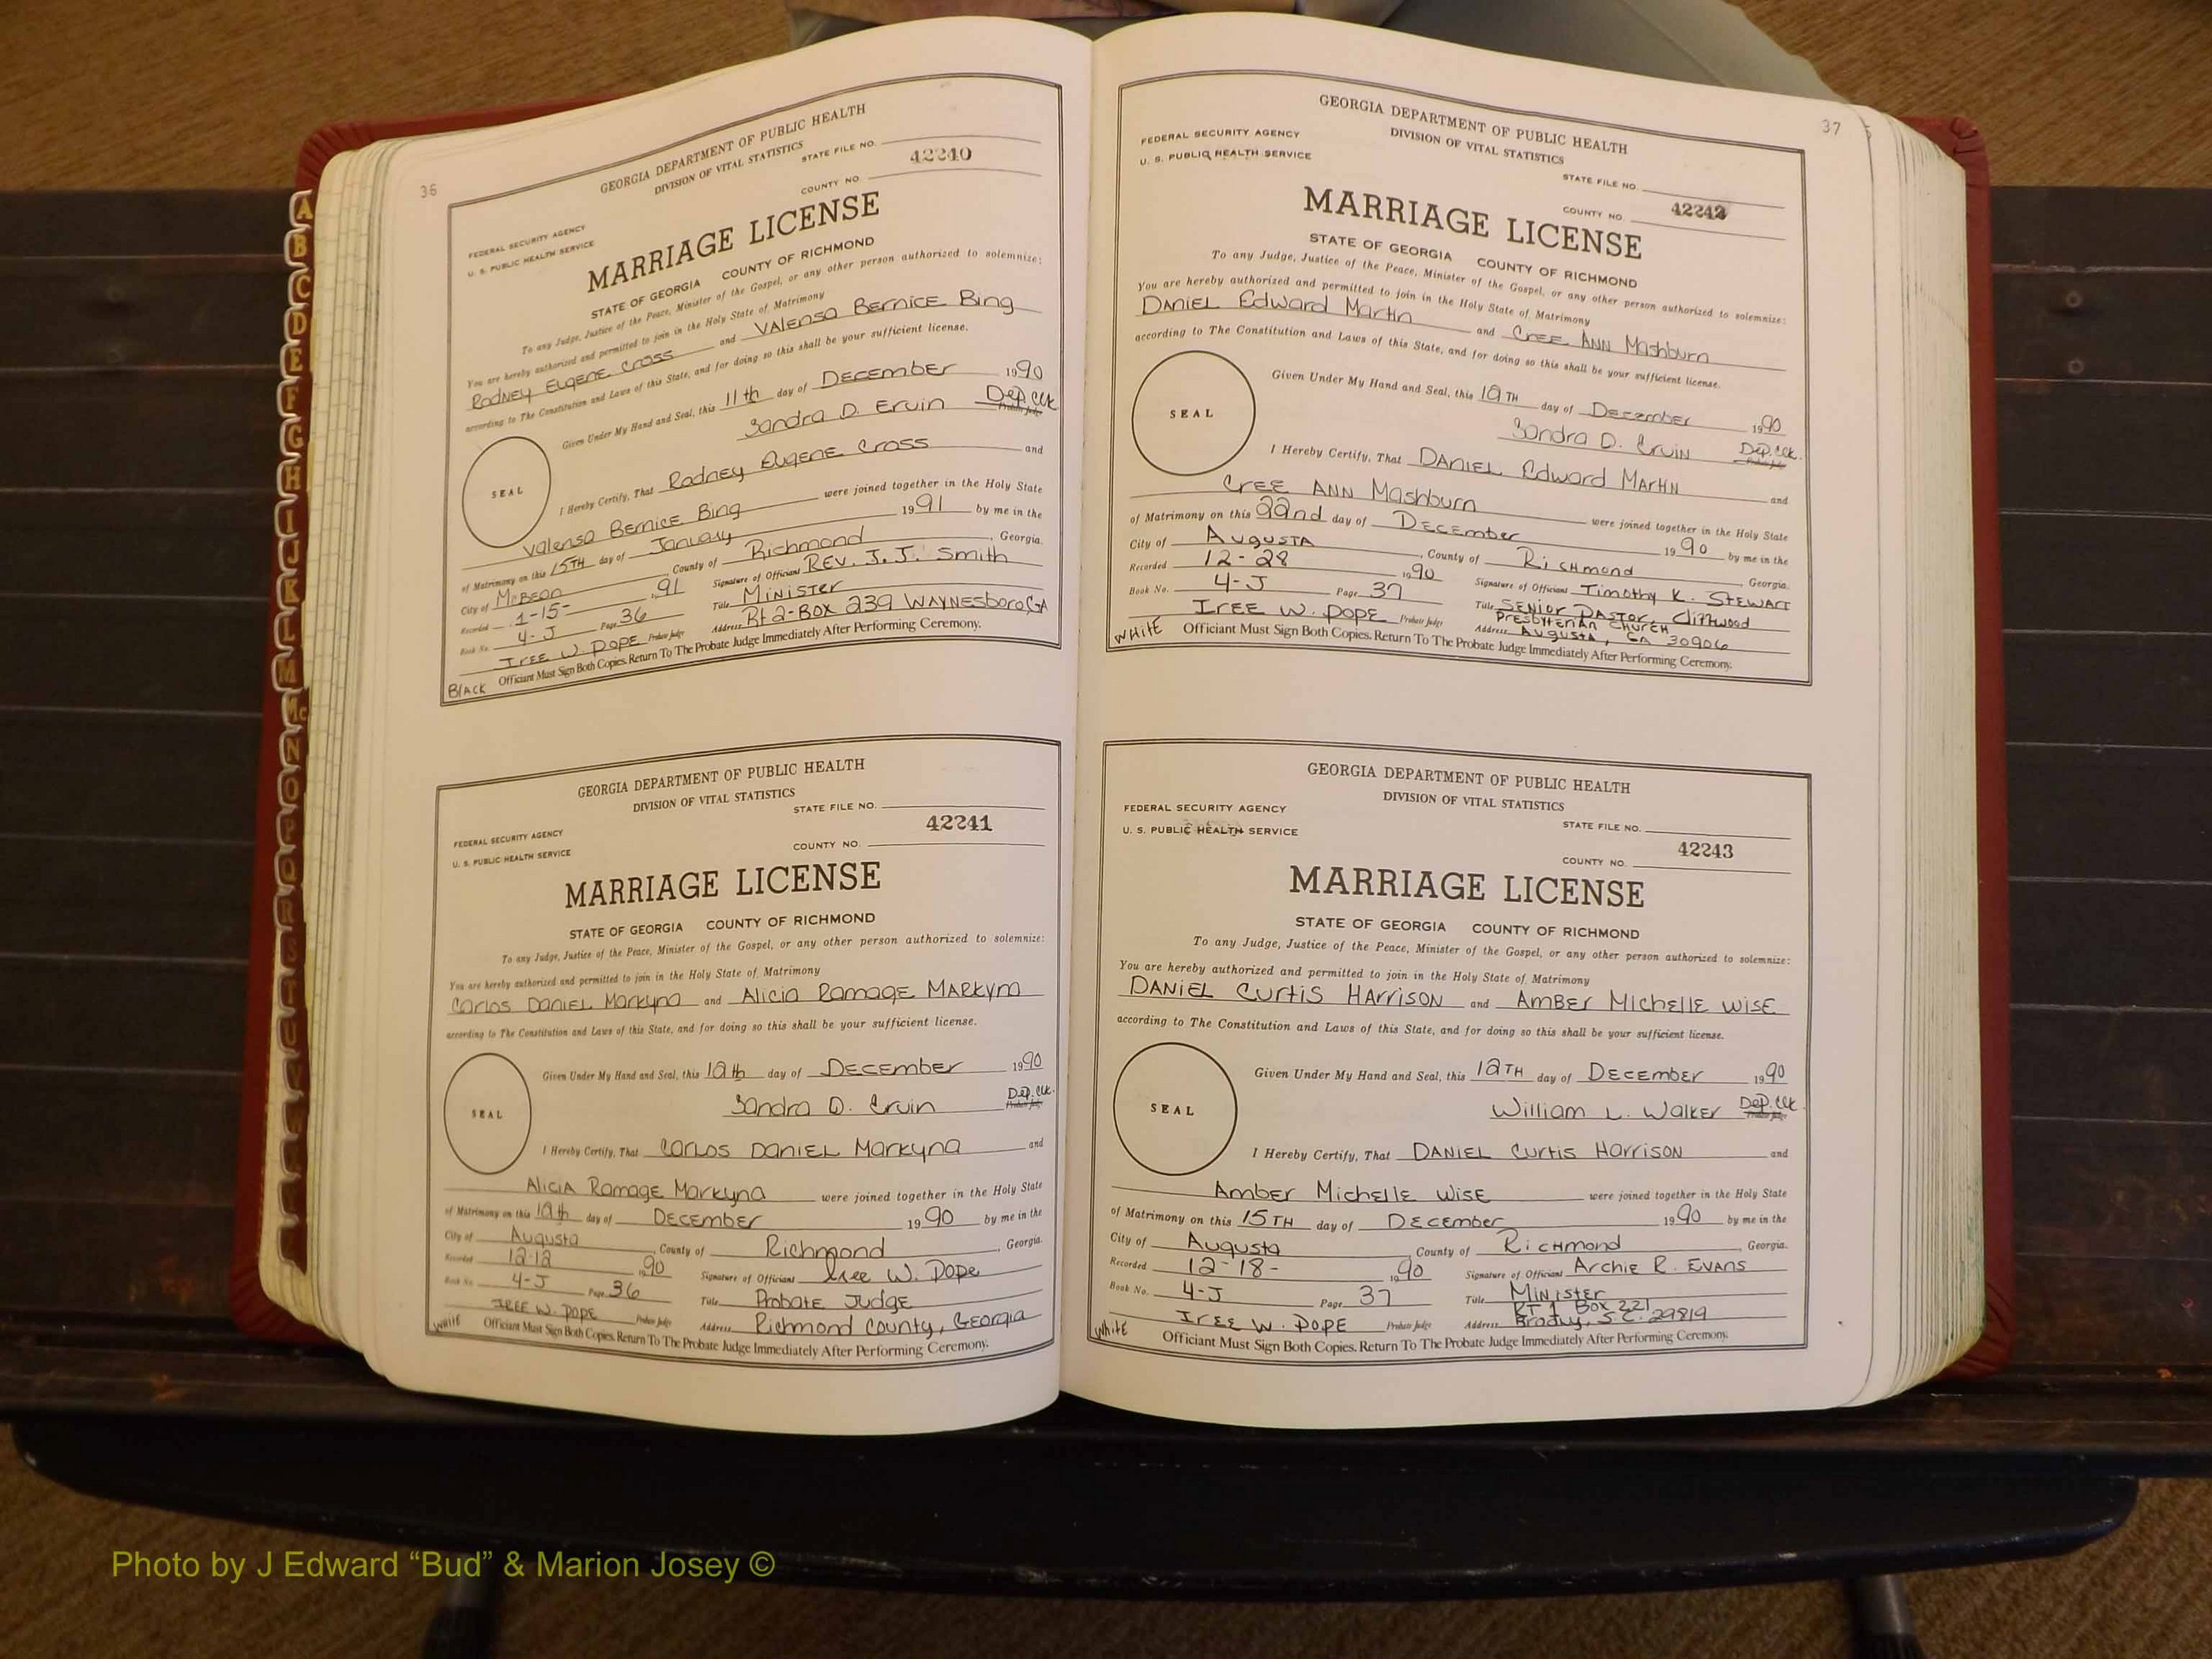 36
GEORGIA DEPARTMENT OF PUBLIC HEALTH
DIVISION OF VITAL STATISTICS
STATE FILE NO.
42240
COUNTY NO.
FEDERAL SECURITY AGENCY
U. S. PUBLIC HEALTH SERVICE
MARRIAGE LICENSE
STATE OF GEORGIA COUNTY OF RICHMOND
To any Judge, Justice of the Peace, Minister of the Gospel, or any other person authorized to solemnize:
You are hereby authorized and permitted to join in the Holy State of Matrimony
Rodney Eugene Cross and Valensa Bernice Bing
according to The Constitution and Laws of this State, and for doing so this shall be your sufficient license.
Given Under My Hand and Seal, this 11th day of December 1990
Sandra D. Ervin Dep. Clk
Probate Judge
SEAL
I Hereby Certify, That Rodney Eugene Cross and
Valensa Bernice Bing were joined together in the Holy State
of Matrimony on this 15TH day of January 1991 by me in the
City of McBean County of Richmond, Georgia.
Recorded 1-15- 1991 Signature of Officiant Rev. J. J. Smith
Book No. 4-J Page 36 Title Minister
Iree W. Pope Probate Judge Address Rt 2-Box 239 Waynesboro, GA
Black Officiant Must Sign Both Copies. Return To The Probate Judge Immediately After Performing Ceremony.
GEORGIA DEPARTMENT OF PUBLIC HEALTH
DIVISION OF VITAL STATISTICS
STATE FILE NO.
42241
COUNTY NO.
FEDERAL SECURITY AGENCY
U. S. PUBLIC HEALTH SERVICE
MARRIAGE LICENSE
STATE OF GEORGIA COUNTY OF RICHMOND
To any Judge, Justice of the Peace, Minister of the Gospel, or any other person authorized to solemnize:
You are hereby authorized and permitted to join in the Holy State of Matrimony
Carlos Daniel Markyna and Alicia Ramage Markyna
according to The Constitution and Laws of this State, and for doing so this shall be your sufficient license.
Given Under My Hand and Seal, this 12th day of December 1990
Sandra D. Ervin Dep. Clk.
Probate Judge
SEAL
I Hereby Certify, That Carlos Daniel Markyna and
Alicia Ramage Markyna were joined together in the Holy State
of Matrimony on this 12th day of December 1990 by me in the
City of Augusta, County of Richmond, Georgia.
Recorded 12-12 1990 Signature of Officiant Iree W. Pope
Book No. 4-J Page 36 Title Probate Judge
Iree W. Pope Probate Judge Address Richmond County, Georgia
White Officiant Must Sign Both Copies. Return To The Probate Judge Immediately After Performing Ceremony.
37
GEORGIA DEPARTMENT OF PUBLIC HEALTH
DIVISION OF VITAL STATISTICS
FEDERAL SECURITY AGENCY
U. S. PUBLIC HEALTH SERVICE
STATE FILE NO.
42242
COUNTY NO.
MARRIAGE LICENSE
STATE OF GEORGIA COUNTY OF RICHMOND
To any Judge, Justice of the Peace, Minister of the Gospel, or any other person authorized to solemnize:
You are hereby authorized and permitted to join in the Holy State of Matrimony
Daniel Edward Martin and Cree Ann Mashburn
according to The Constitution and Laws of this State, and for doing so this shall be your sufficient license.
Given Under My Hand and Seal, this 12TH day of December 1990
Sandra D. Ervin Dep. Clk.
Probate Judge
SEAL
I Hereby Certify, That Daniel Edward Martin and
Cree Ann Mashburn were joined together in the Holy State
of Matrimony on this 22nd day of December 1990 by me in the
City of Augusta, County of Richmond, Georgia.
Recorded 12-28 1990 Signature of Officiant Timothy K. Stewart
Book No. 4-J Page 37 Title Senior Pastor, Cliffwood
Presbyterian Church
Iree W. Pope Probate Judge Address Augusta, GA 30906
White Officiant Must Sign Both Copies. Return To The Probate Judge Immediately After Performing Ceremony.
GEORGIA DEPARTMENT OF PUBLIC HEALTH
DIVISION OF VITAL STATISTICS
FEDERAL SECURITY AGENCY
U. S. PUBLIC HEALTH SERVICE
STATE FILE NO.
42243
COUNTY NO.
MARRIAGE LICENSE
STATE OF GEORGIA COUNTY OF RICHMOND
To any Judge, Justice of the Peace, Minister of the Gospel, or any other person authorized to solemnize:
You are hereby authorized and permitted to join in the Holy State of Matrimony
Daniel Curtis Harrison and Amber Michelle Wise
according to The Constitution and Laws of this State, and for doing so this shall be your sufficient license.
Given Under My Hand and Seal, this 12TH day of December 1990
William L. Walker Dep. Clk
Probate Judge
SEAL
I Hereby Certify, That Daniel Curtis Harrison and
Amber Michelle Wise were joined together in the Holy State
of Matrimony on this 15TH day of December 1990 by me in the
City of Augusta, County of Richmond, Georgia.
Recorded 12-18- 1990 Signature of Officiant Archie R. Evans
Book No. 4-J Page 37 Title Minister
RT 1 Box 221
Iree W. Pope Probate Judge Address S.C. 29819
White Officiant Must Sign Both Copies. Return To The Probate Judge Immediately After Performing Ceremony.
A
B
C
D
E
F
G
H
I
J
K
L
M
Mc
N
O
P
Q
R
S
T
U
Photo by J Edward “Bud” & Marion Josey ©